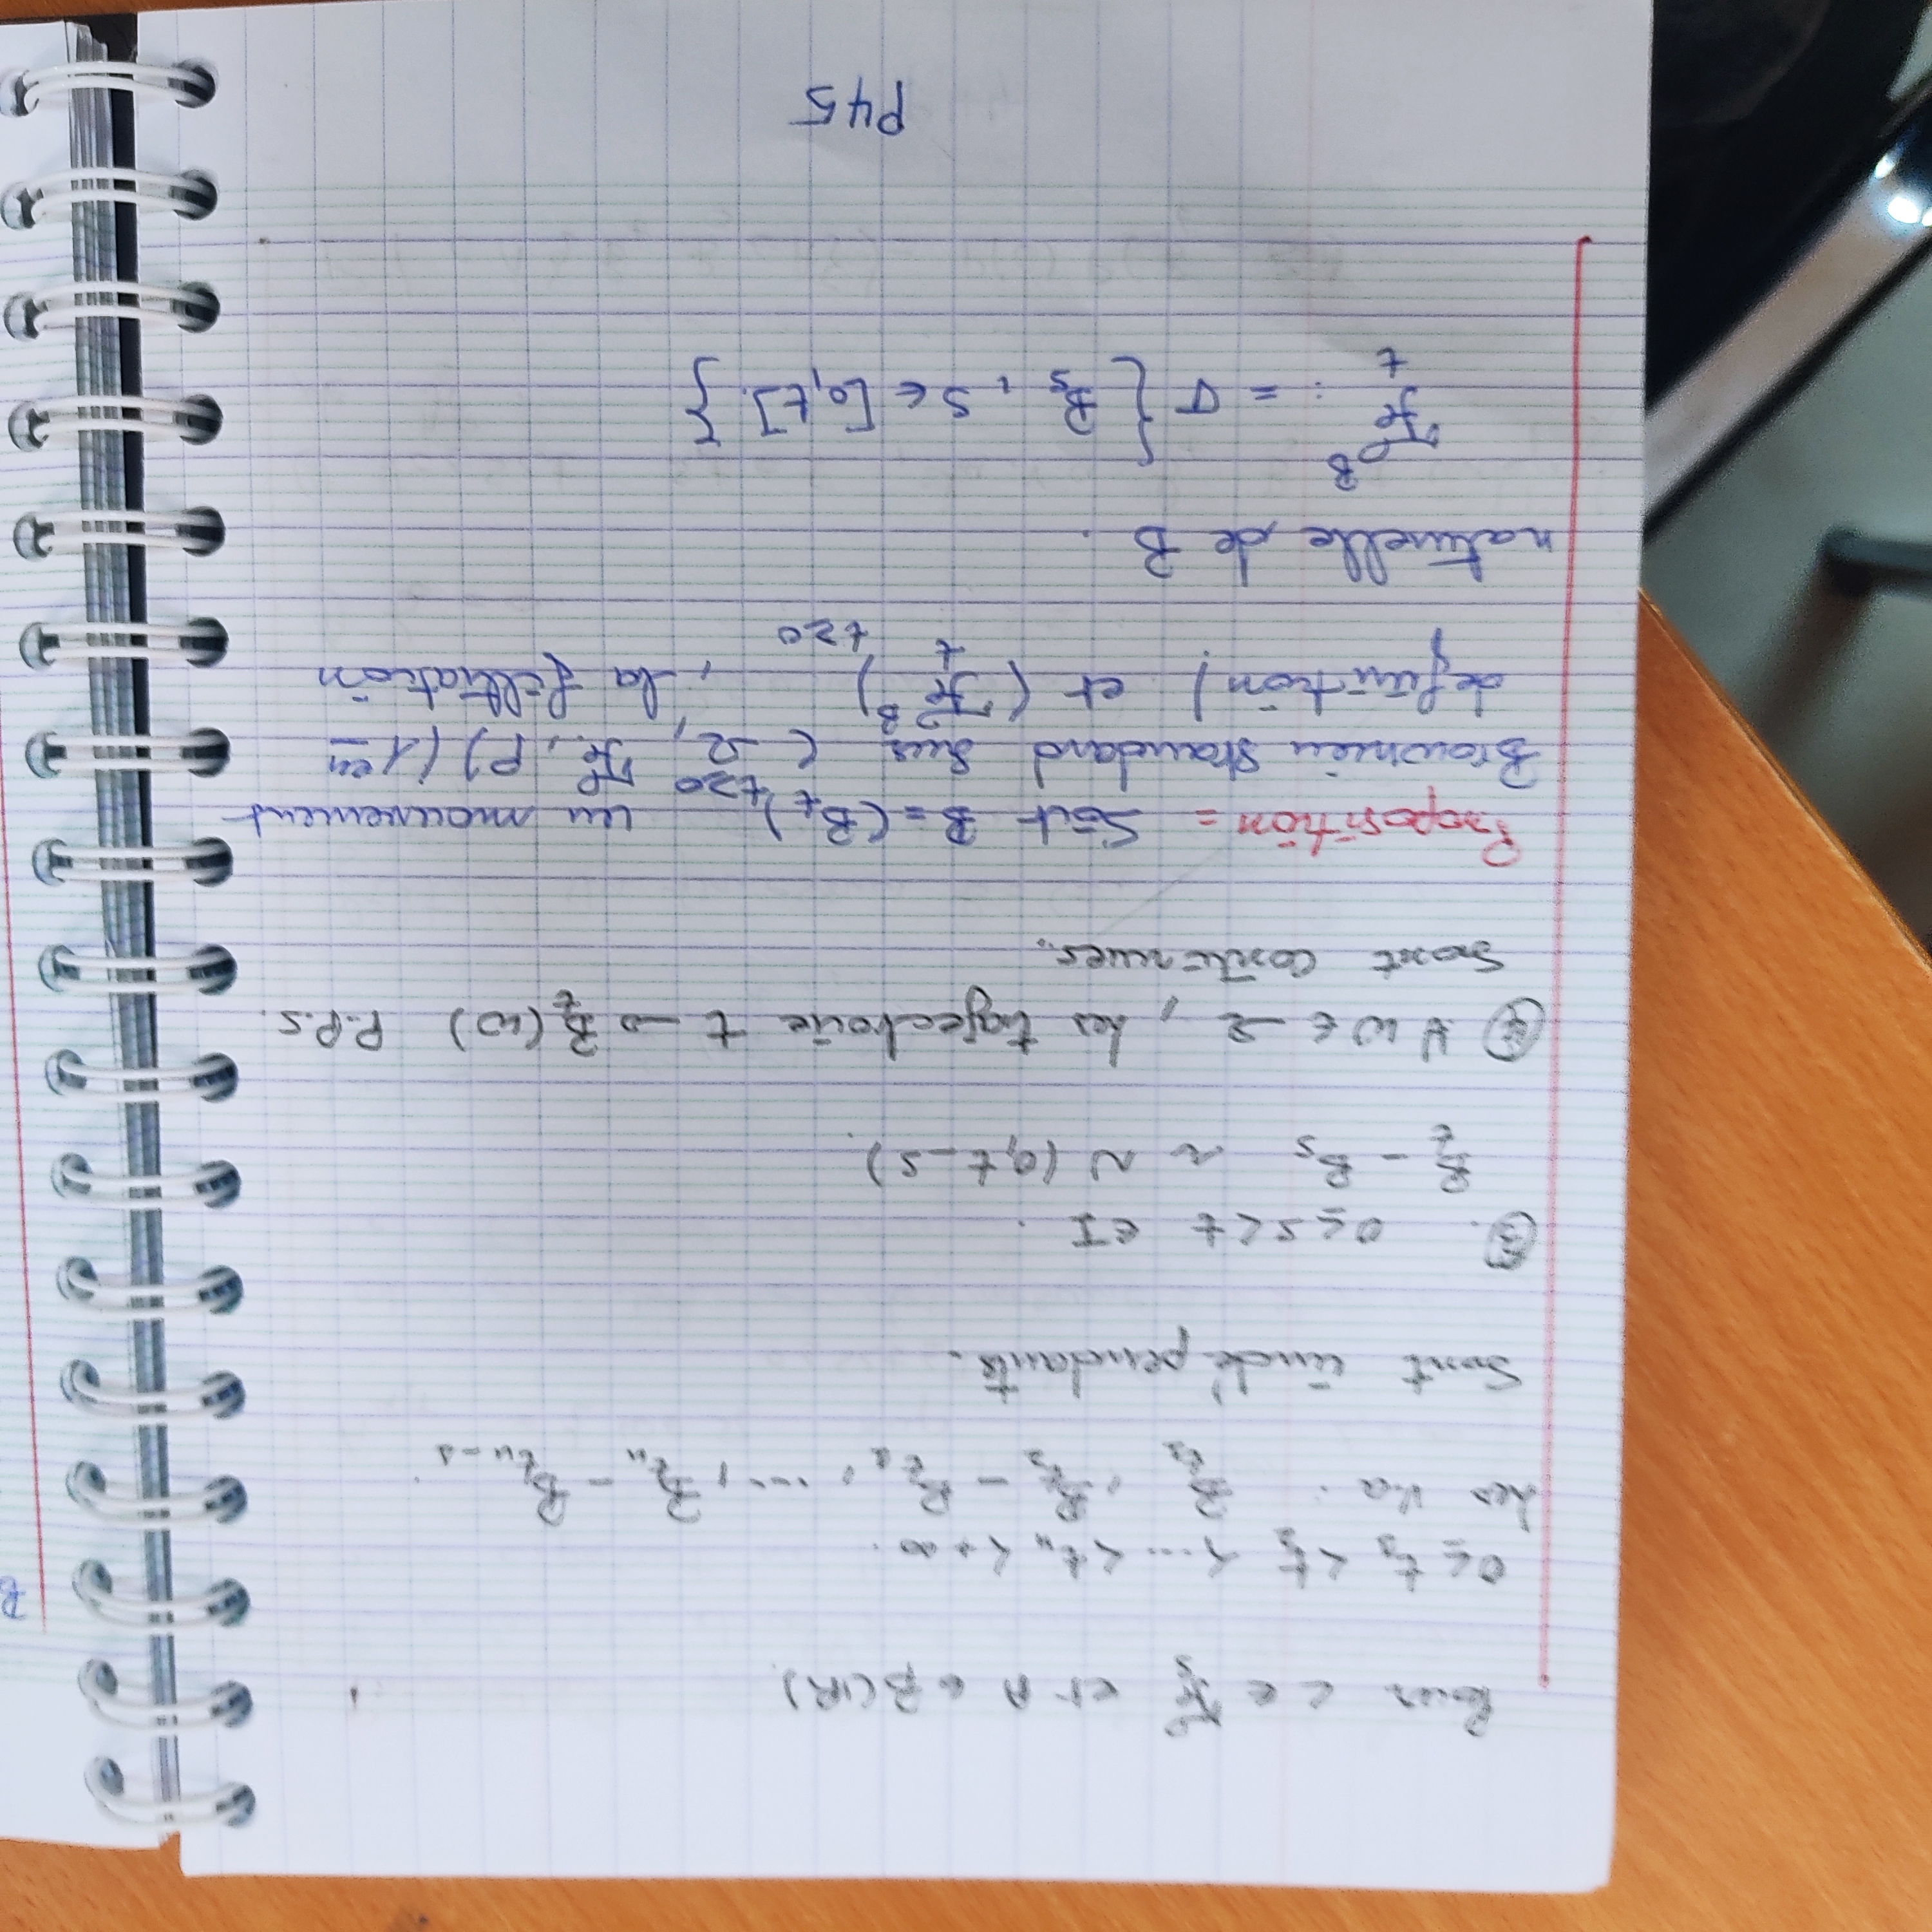 Pour C ∈ ℱ_s et A ∈ B(IR).
0 ≤ t_1 < t_2 < ... < t_n < +∞.
Les v.a : B_{t_1}, B_{t_2} - B_{t_1}, ..., B_{t_n} - B_{t_{n-1}}.
Sont indépendants.
③. 0 ≤ s < t ∈ I.
B_t - B_s ~ N(0, t-s).
④ ∀ ω ∈ Ω, Les trajectoire t → B_t(ω) P.P.s.
sont continues.
Proposition = Soit B = (B_t)_{t≥0} un mouvement
Brownien standard sur (Ω, ℱ, P) (1^{en}
definition) et (ℱ_t^B)_{t≥0}, la filtration
naturelle de B.
ℱ_t^B := σ{B_s, s ∈ [0,t].}
P45